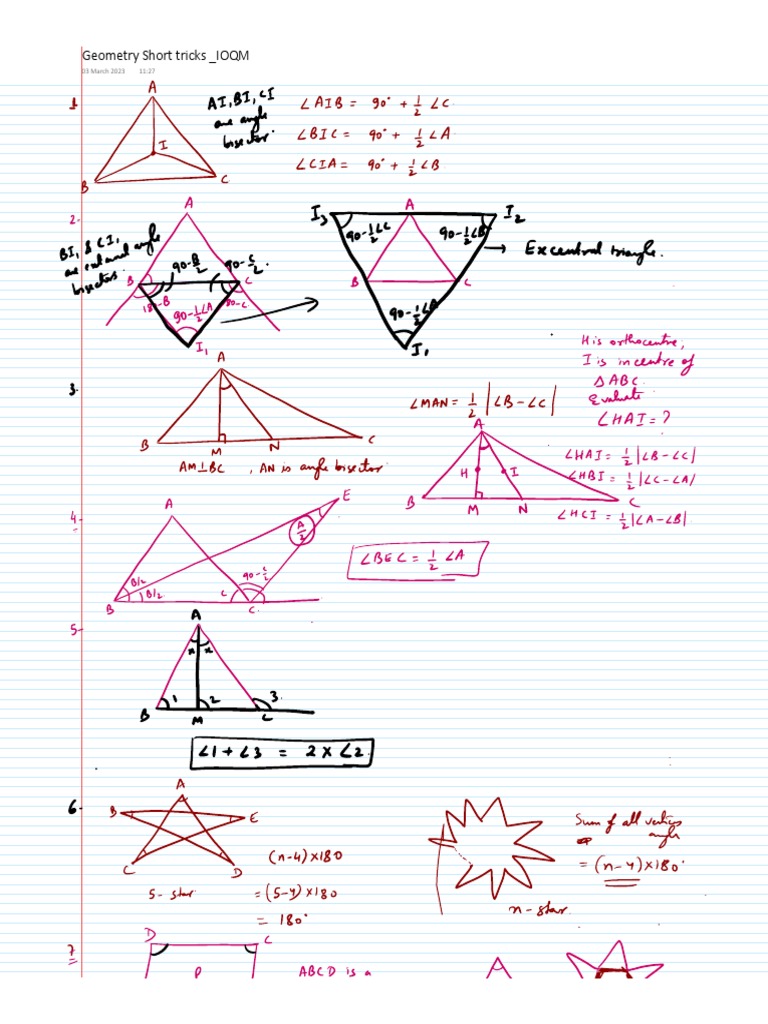 Geometry Short tricks _IOQM
03 March 2023 11:27
1.
A
B
C
I
AI, BI, CI
are angle
bisector.
∠AIB = 90° + 1/2 ∠C
∠BIC = 90° + 1/2 ∠A
∠CIA = 90° + 1/2 ∠B
2.
BI, & CI,
are external angle
bisectors.
A
B
C
90-B/2
90-C/2.
180-B
180-C
90-1/2∠A
I1
I3
A
I2
90-1/2∠C
90-1/2∠B
B
C
90-1/2∠A
I1
→ Excentral triangle.
3.
A
B
M
N
C
AM⊥BC , AN is angle bisector
∠MAN = 1/2 |∠B-∠C|
H is orthocentre,
I is incentre of
△ABC.
Evaluate
∠HAI = ?
A
H
I
B
M
N
C
∠HAI = 1/2 |∠B-∠C|
∠HBI = 1/2 |∠C-∠A|
∠HCI = 1/2 |∠A-∠B|
4.
A
E
A/2
B/2
B/2
C
90-C/2
B
C.
∠BEC = 1/2 ∠A
5.
A
x
x
1
2
3.
B
M
C
∠1 + ∠3 = 2 x ∠2
6.
A
B
E
C
D
5- star
(n-4)×180
= (5-4)×180
= 180°
n-star.
Sum of all vertices
angle
= (n-4)×180°
7
D
C
P
ABCD is a
A